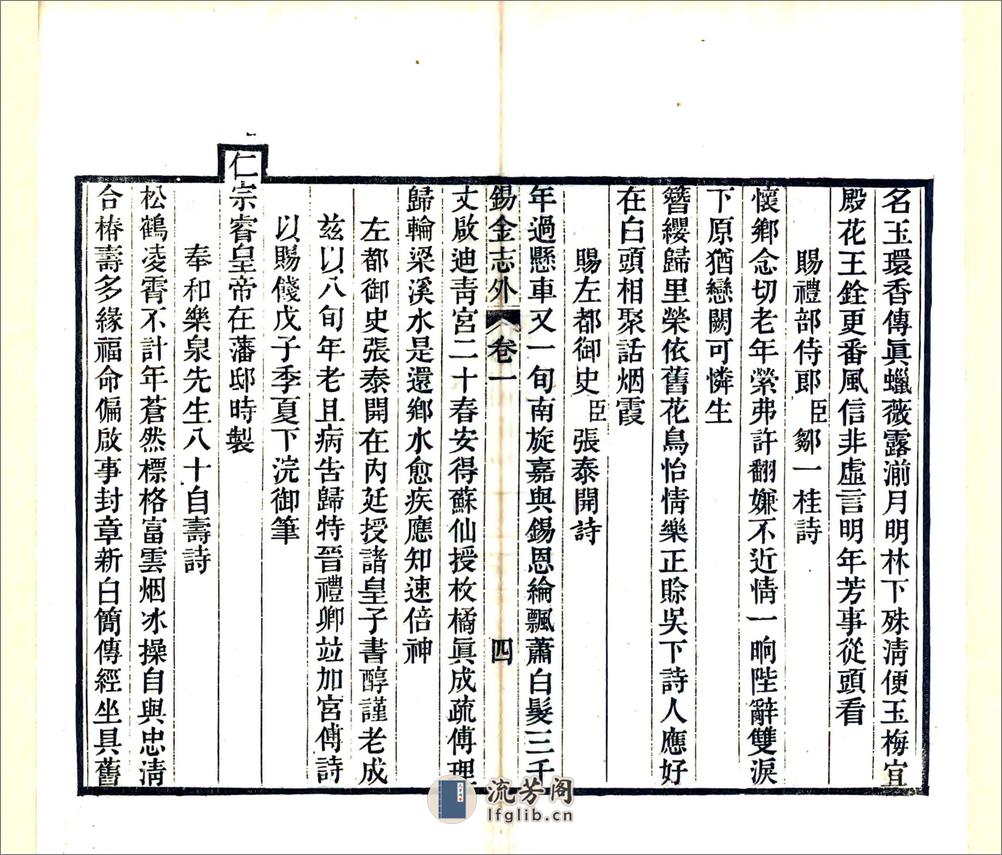 名玉環香傳眞蠟薇露湔月明林下殊淸便玉梅宜
殿花王銓更番風信非虛言明年芳事從頭看
賜禮部侍郎臣鄒一桂詩
懷鄉念切老年縈弗許翻嫌不近情一晌陛辭雙淚
下原猶戀闕可憐生
簪纓歸里榮依舊花鳥怡情樂正賒吳下詩人應好
在白頭相聚話烟霞
賜左都御史臣張泰開詩
年過懸車又一旬南旋嘉與錫恩綸飄蕭白髮三千
錫金志外 卷一 四
丈啟迪靑宮二十春安得蘇仙授枚橘眞成疏傅理
歸輪梁溪水是還鄉水愈疾應知速倍神
左都御史張泰開在內廷授諸皇子書醇謹老成
茲以八旬年老且病告歸特晉禮卿並加宮傅詩
以賜餞戊子季夏下浣御筆
仁宗睿皇帝在藩邸時製
奉和樂泉先生八十自壽詩
松鶴凌霄不計年蒼然標格富雲烟冰操自與忠淸
合椿壽多緣福命偏啟事封章新白簡傳經坐具舊
流芳阁
lfglib.cn